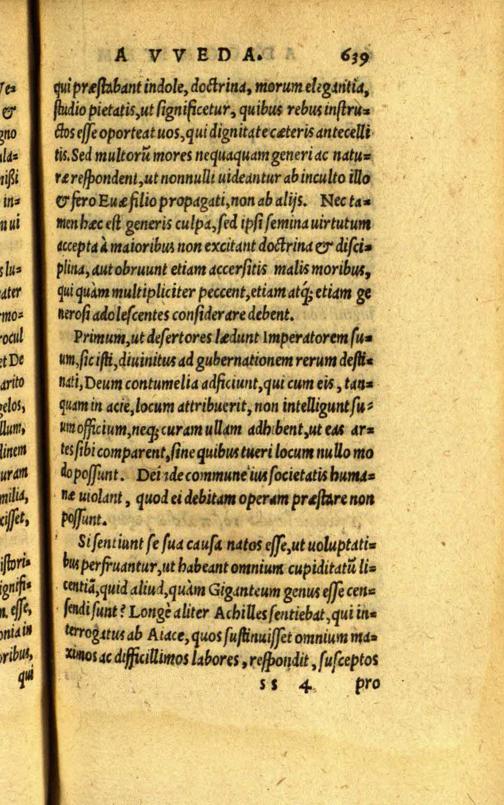 A VVEDA. 639
qui præstabant indole, doctrina, morum elegantia,
studio pietatis, ut significetur, quibus rebus instru=
ctos esse oporteat uos, qui dignitate cæteris antecelli
tis. Sed multorũ mores nequaquam generi ac natu=
ræ respondent, ut nonnulli uideantur ab inculto illo
& fero Euæ filio propagati, non ab alijs. Nec ta=
men hæc est generis culpa, sed ipsi semina uirtutum
accepta à maioribus non excitant doctrina & disci=
plina, aut obruunt etiam accersitis malis moribus,
qui quàm multipliciter peccent, etiam atq; etiam ge
nerosi adolescentes considerare debent.
Primum, ut desertores lædunt Imperatorem su=
um, sic isti, diuinitus ad gubernationem rerum desti=
nati, Deum contumelia adficiunt, qui cum eis, tan=
quam in acie, locum attribuerit, non intelligunt su=
um officium, neq; curam ullam adhibent, ut eas ar=
tes sibi comparent, sine quibus tueri locum nullo mo
do possunt. Deinde commune ius societatis huma=
næ uiolant, quod ei debitam operam præstare non
possunt.
Si sentiunt se sua causa natos esse, ut uoluptati=
bus perfruantur, ut habeant omnium cupiditatũ li=
centiã, quid aliud, quàm Giganteum genus esse cen=
sendi sunt? Longè aliter Achilles sentiebat, qui in=
terrogatus ab Aiace, quos sustinuisset omnium ma=
ximos ac difficillimos labores, respondit, susceptos
ss 4 pro